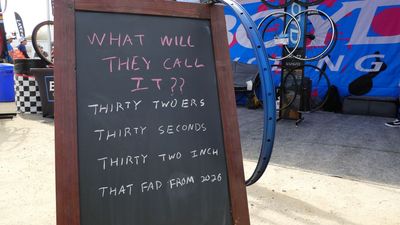 WHAT WILL
THEY CALL
IT??
THIRTY TWOERS
THIRTY SECONDS
THIRTY TWO INCH
THAT FAD FROM 2026
BOYD